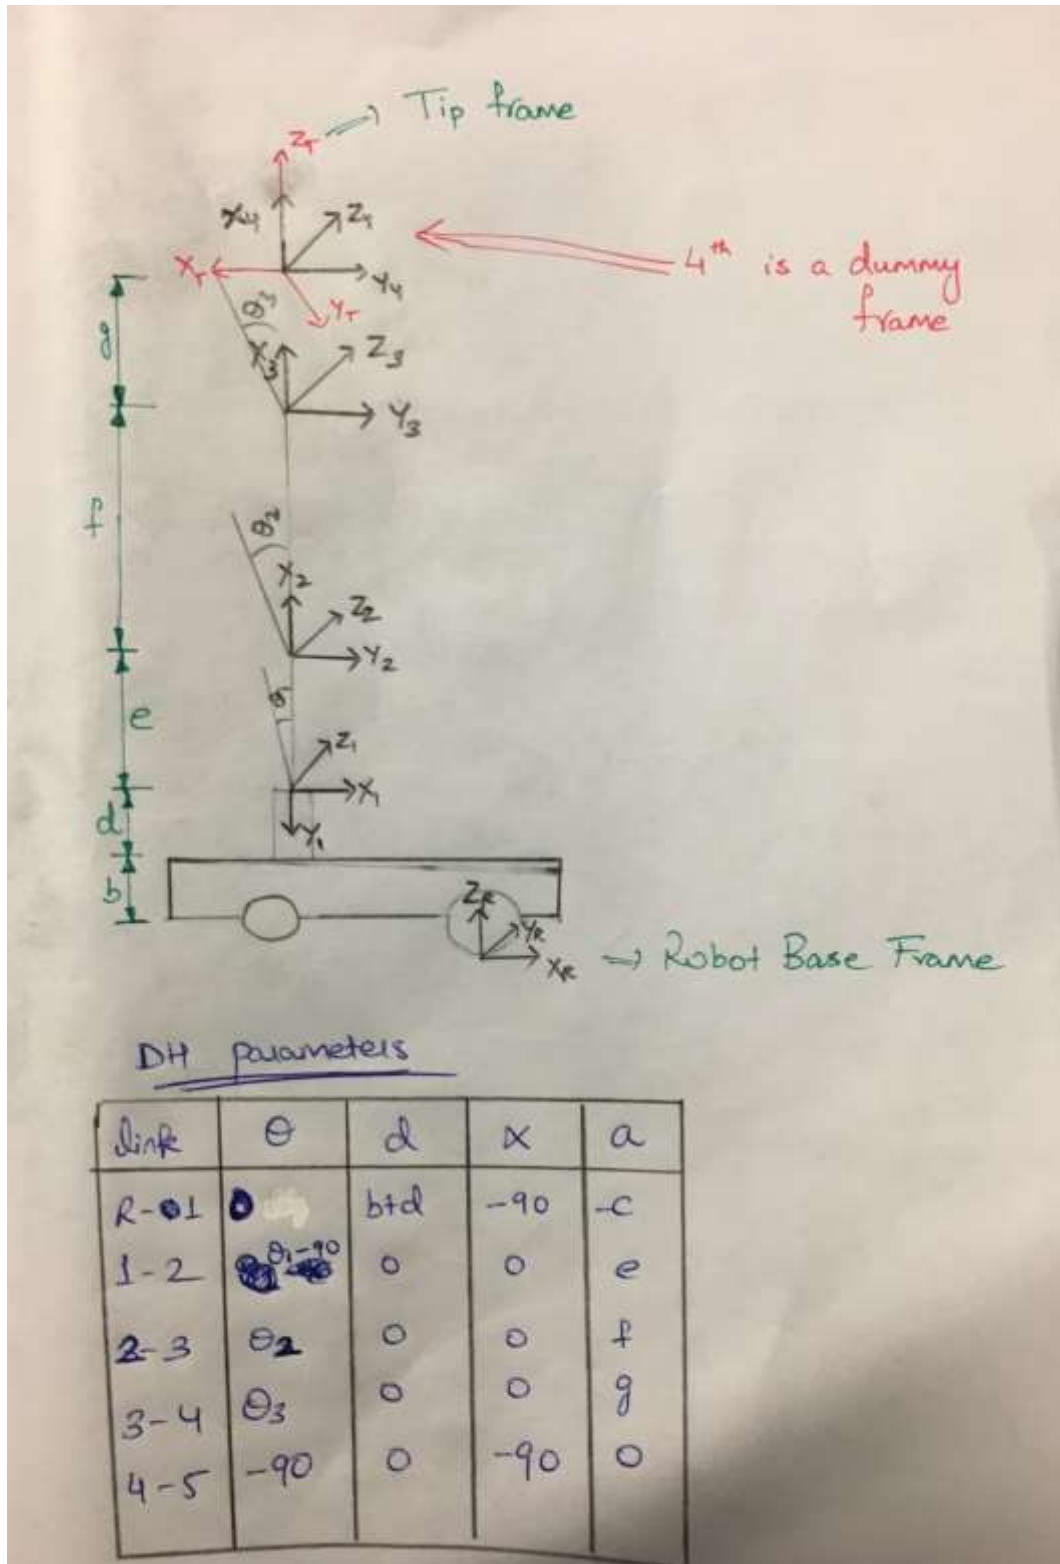 Z_T → Tip frame
X4 Z4
X_T Y4 4th is a dummy
frame
θ3 Y_T
g X3 Z3
Y3
f θ2
X2
Z2
Y2
e θ1
Z1
X1
d Y1
b Z_R
Y_R
X_R → Robot Base Frame
DH parameters
link θ d α a
R-01 0 b+d -90 -c
1-2 θ1-90 0 0 e
2-3 θ2 0 0 f
3-4 θ3 0 0 g
4-5 -90 0 -90 0